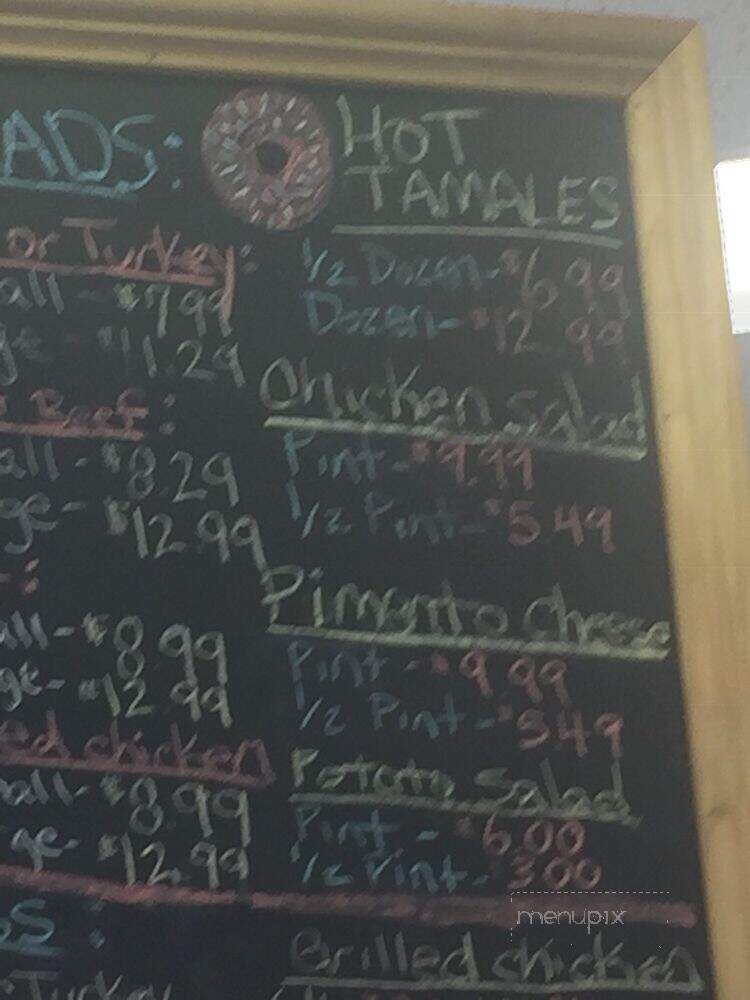 ADS:
or Turkey:
all - $7.99
ge - $11.29
Beef:
all - $8.29
ge - $12.99
all - $8.99
ge - $12.99
ed chicken
all - $8.99
ge - $12.99
S:
Turkey
HOT
TAMALES
1/2 Dozen - $6.99
Dozen - $12.99
Chicken Salad
Pint - $9.99
1/2 Pint - $5.49
Pimento Cheese
Pint - $9.99
1/2 Pint - $5.49
Potato Salad
Pint - $6.00
1/2 Pint - $3.00
menupix
Grilled chicken